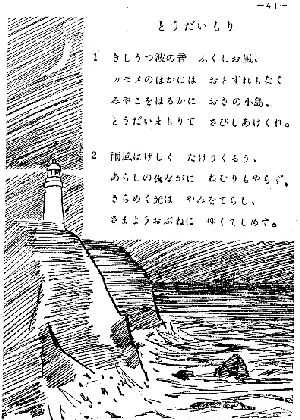 —41—
とうだいもり
1 きしうつ波の音 ふくしお風、
カモメのほかには おとずれもなく
みやこをはるかに おきの小島、
とうだいまもりて さびしあけくれ。
2 雨風はげしく たけりくるう、
あらしの夜なかに ねむりもやらず、
きらめく光は やみをてらし、
さまようおぶねに ゆくてしめす。